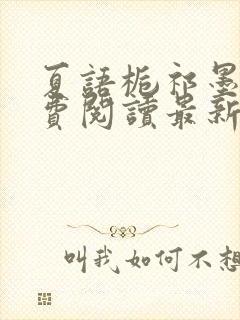 夏語梔祁墨
費閱讀最新
叫我如何不想